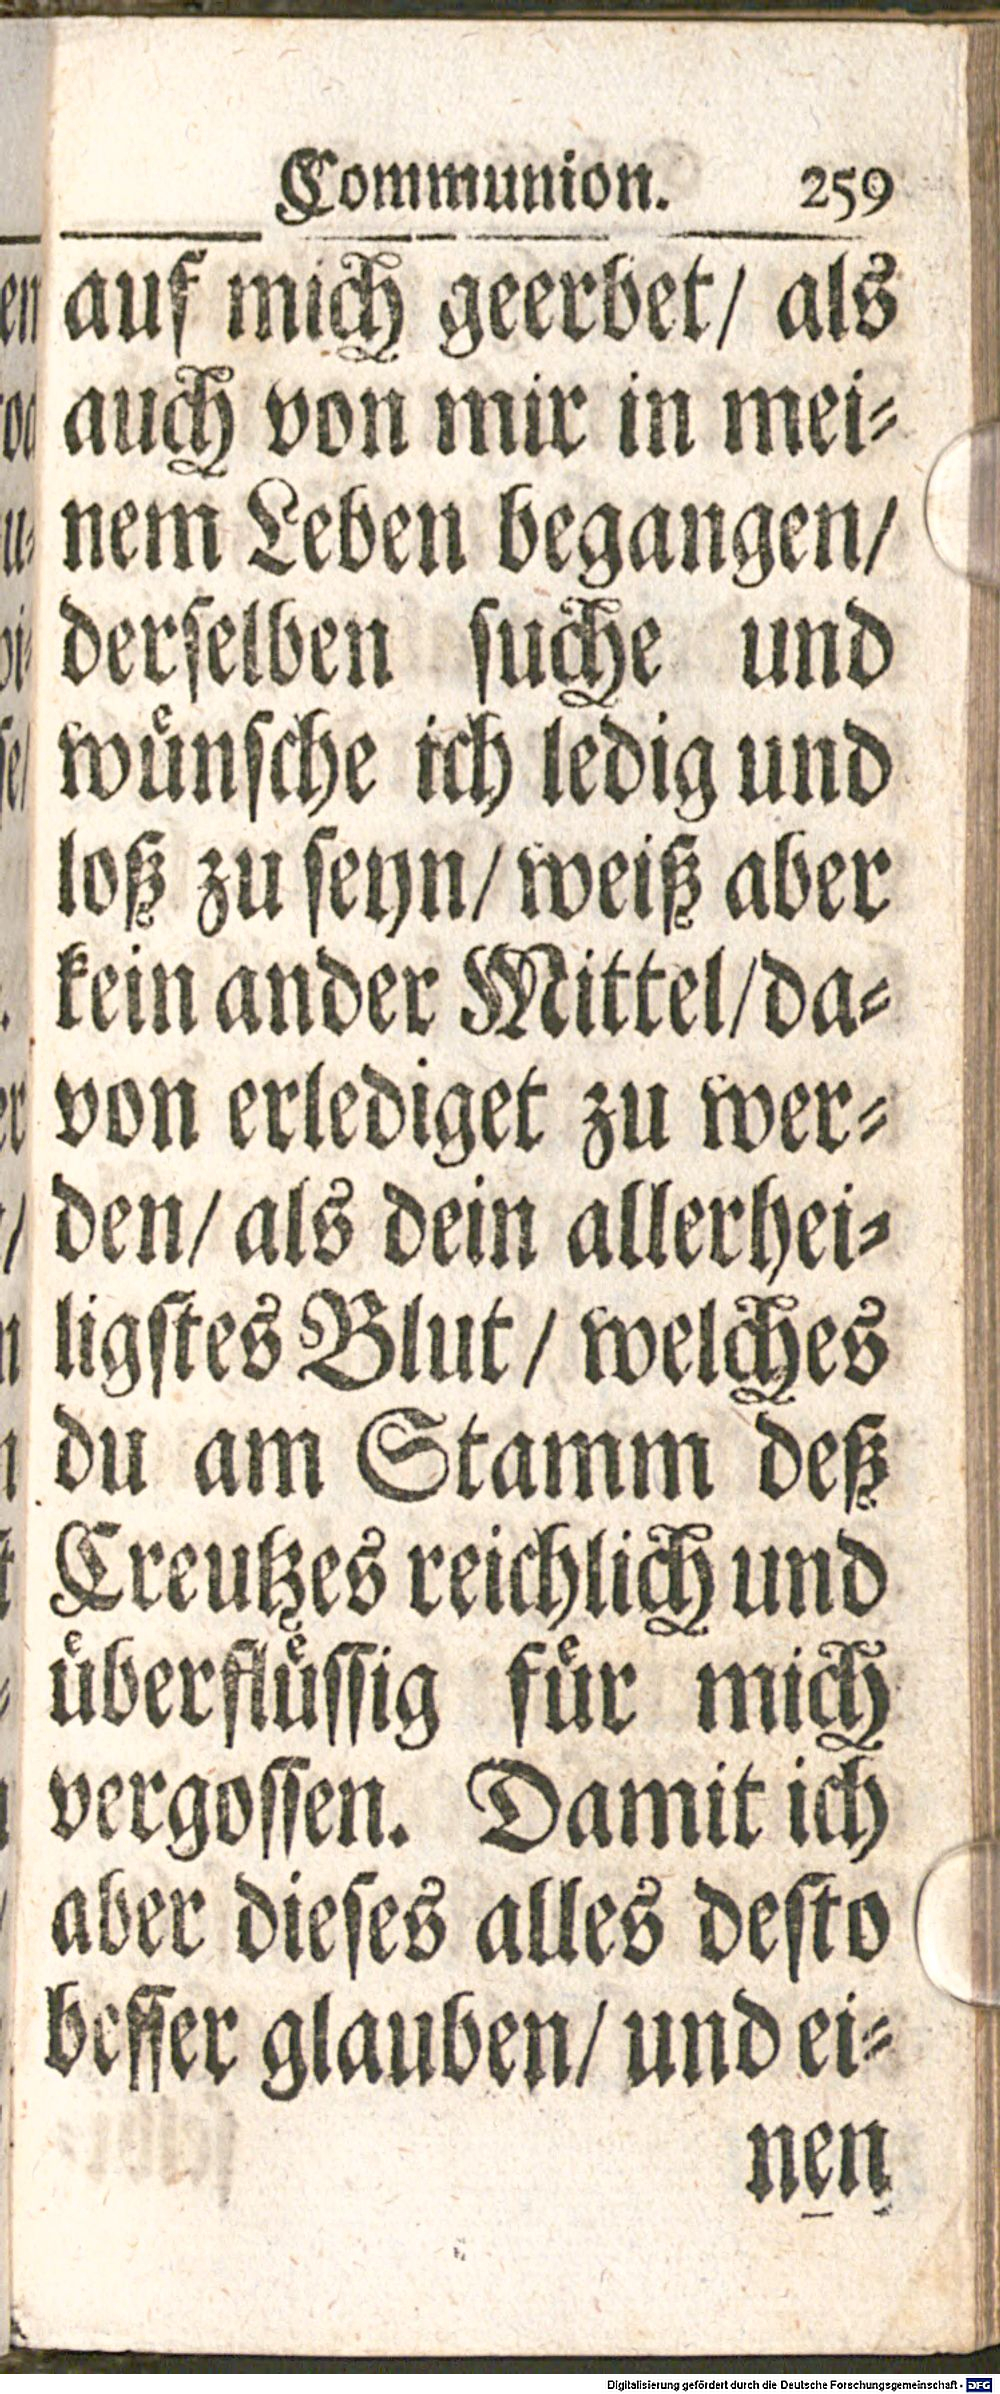 Communion. 259
auf mich geerbet/ als
auch von mir in mei-
nem Leben begangen/
derſelben ſuche und
wuͤnſche ich ledig und
loß zu ſeyn/ weiß aber
kein ander Mittel/ da-
von erlediget zu wer-
den/ als dein allerhei-
ligſtes Blut/ welches
du am Stamm deß
Creutzes reichlich und
uͤberfluͤſſig fuͤr mich
vergoſſen. Damit ich
aber dieſes alles deſto
beſſer glauben/ und ei-
nen
Digitalisierung gefördert durch die Deutsche Forschungsgemeinschaft - DFG